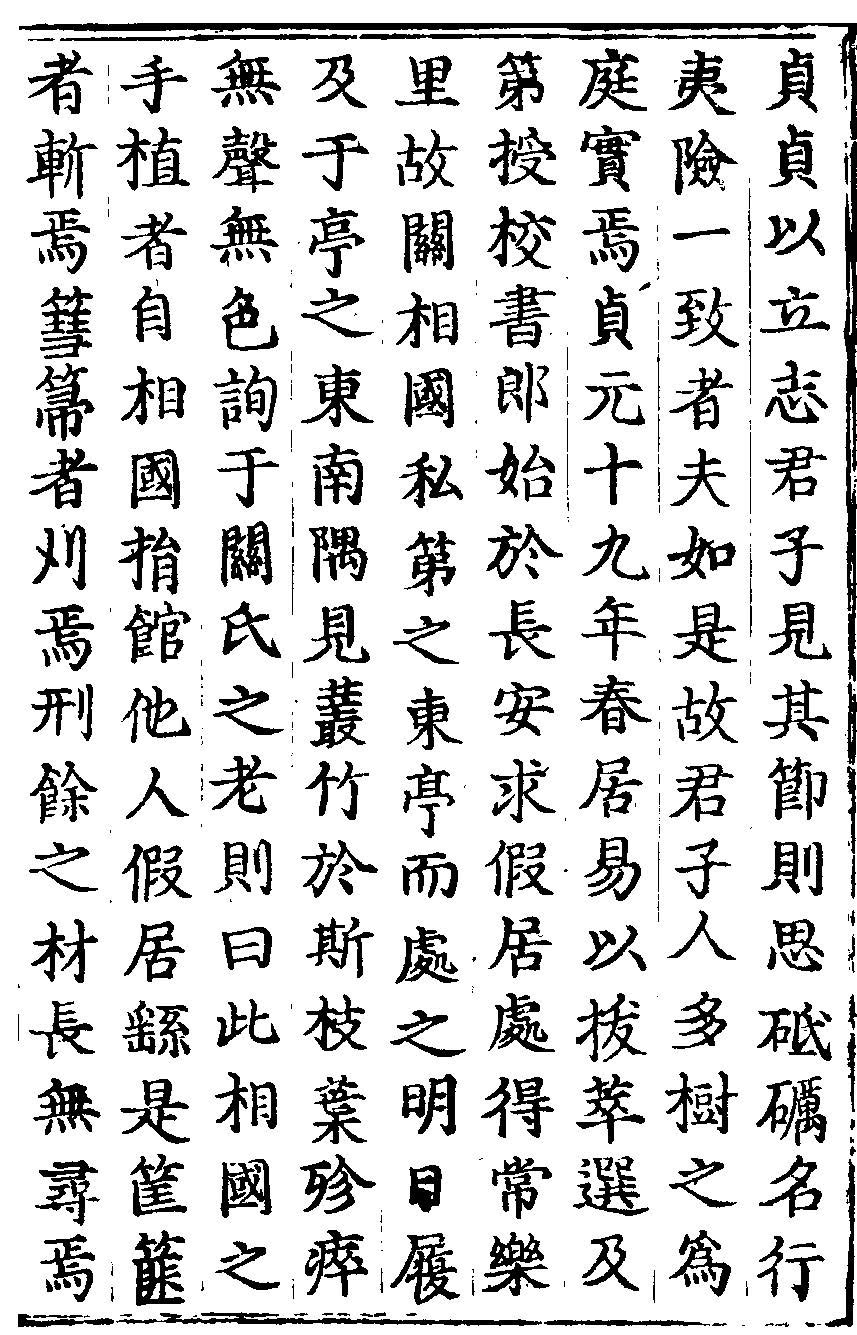 貞貞以立志君子見其節則思砥礪名行
夷險一致者夫如是故君子人多樹之爲
庭實焉貞元十九年春居易以拔萃選及
第授校書郎始於長安求假居處得常樂
里故關相國私第之東亭而處之明日屐
及于亭之東南隅見叢竹於斯枝葉殄瘁
無聲無色詢于關氏之老則曰此相國之
手植者自相國捐館他人假居繇是筐篚
者斬焉篲箒者刈焉刑餘之材長無尋焉